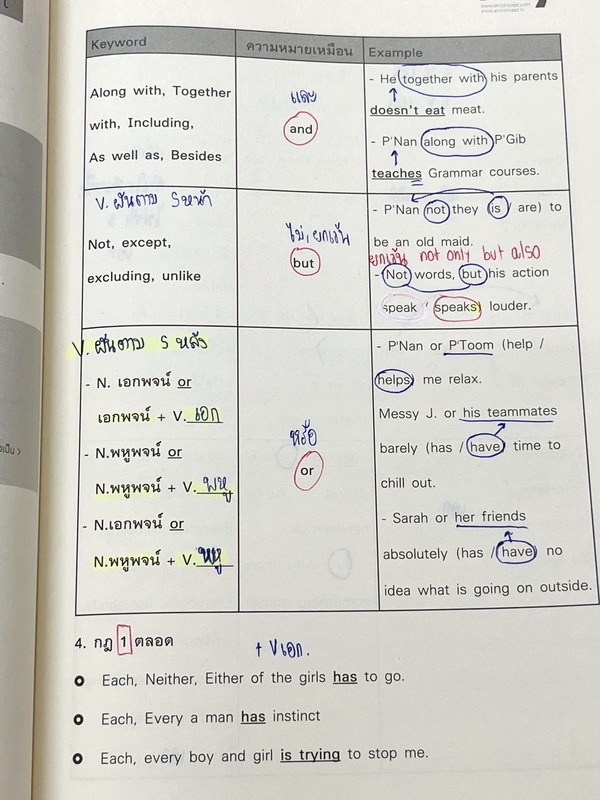 www.enconcept.com
www.enconcept.tv
Keyword
ความหมายเหมือน
Example
Along with, Together
with, Including,
As well as, Besides
และ
and
- He together with his parents
doesn't eat meat.
- P'Nan along with P'Gib
teaches Grammar courses.
V. ผันตาม S หน้า
Not, except,
excluding, unlike
ไม่, ยกเว้น
but
- P'Nan not they (is / are) to
be an old maid.
ยกเว้น not only but also
- Not words, but his action
speak / speaks) louder.
V. ผันตาม S หลัง
- N. เอกพจน์ or
เอกพจน์ + V. เอก
- N.พหูพจน์ or
N.พหูพจน์ + V. พหู
- N.เอกพจน์ or
N.พหูพจน์ + V. พหู
หรือ
or
- P'Nan or P'Toom (help /
helps) me relax.
Messy J. or his teammates
barely (has / have) time to
chill out.
- Sarah or her friends
absolutely (has / have) no
idea what is going on outside.
4. กฎ 1 ตลอด
+ V เอก.
Each, Neither, Either of the girls has to go.
Each, Every a man has instinct
Each, every boy and girl is trying to stop me.